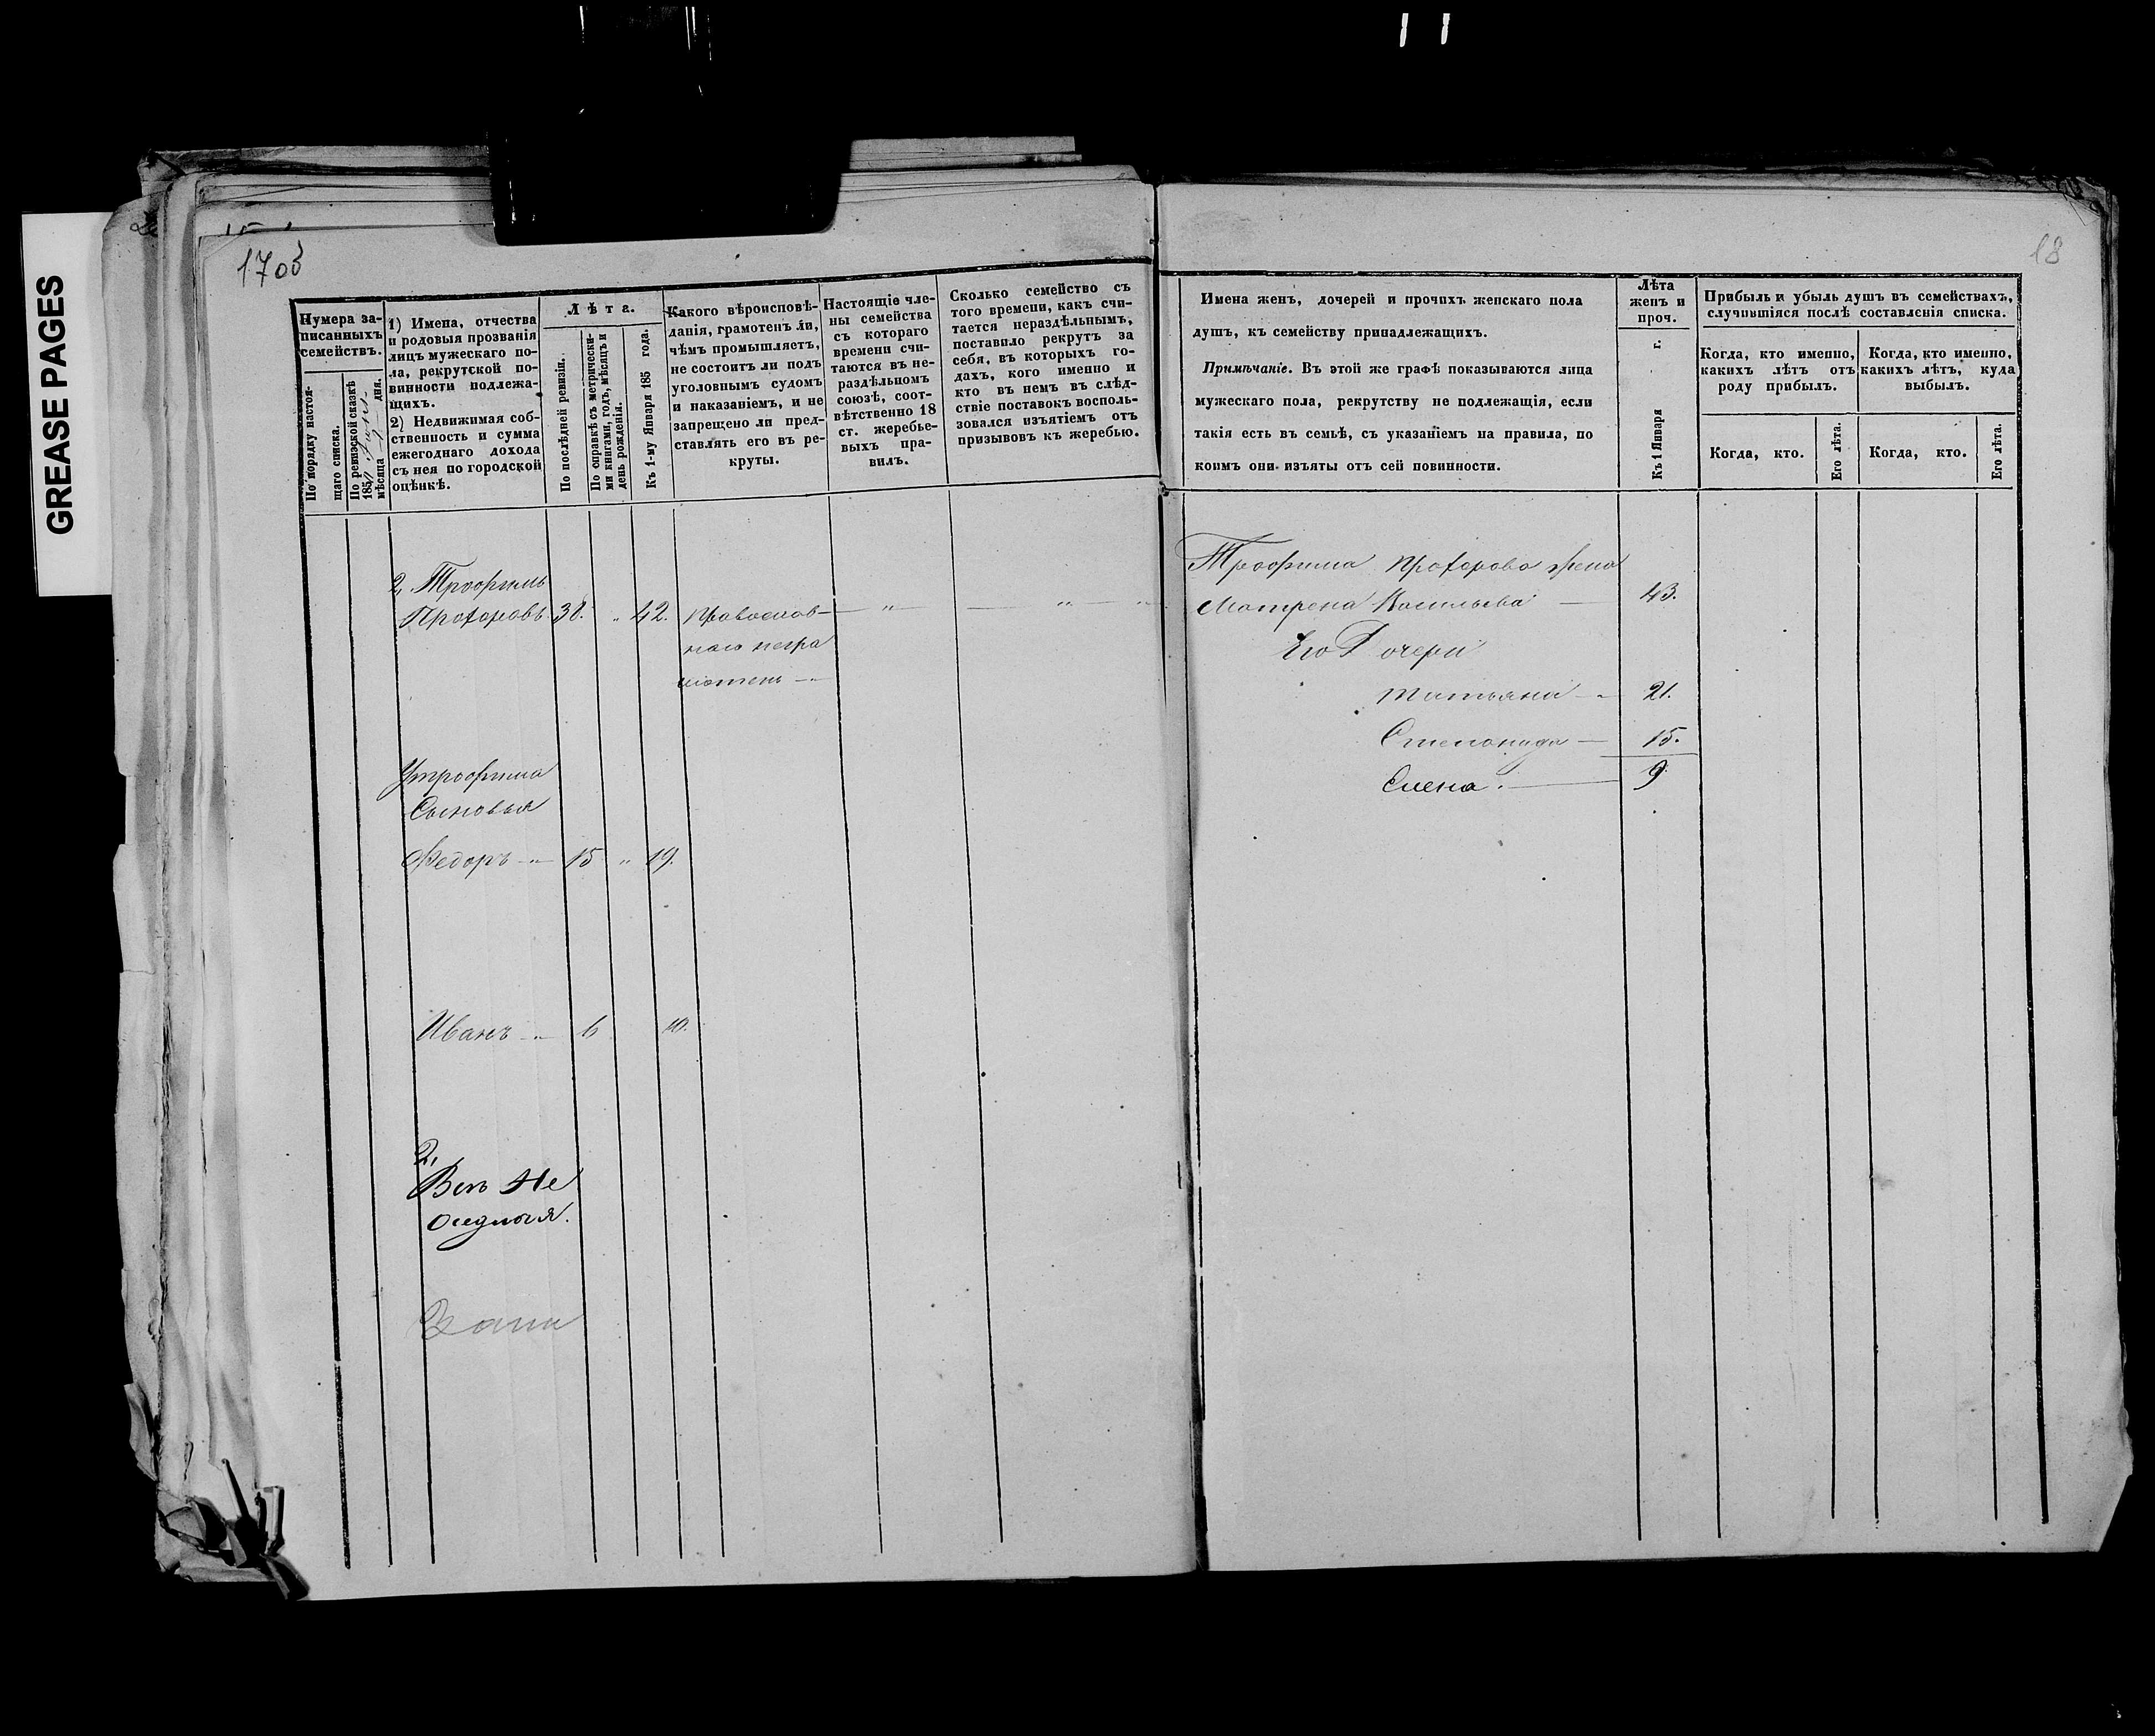 GREASE PAGES
18
Нумера за-
писанныхъ
семействъ.
По порядку настоя-
щаго списка.
По ревизской сказкѣ
185
мѣсяца дня.
1) Имена, отчества
и родовыя прозванія
лицъ мужескаго по-
ла, рекрутской по-
винности подлежа-
щихъ.
2) Недвижимая соб-
ственность и сумма
ежегоднаго дохода
съ нея по городской
оцѣнкѣ.
Лѣта.
По послѣдней ревизіи.
По справкѣ съ метрически-
ми книгами, годъ, мѣсяцъ и
день рожденія.
Къ 1-му Января 185 года.
Какого вѣроисповѣ-
данія, грамотенъ ли,
чѣмъ промышляетъ,
не состоитъ ли подъ
уголовнымъ судомъ
и наказаніемъ, и не
запрещено ли пред-
ставлять его въ ре-
круты.
Настоящіе чле-
ны семейства
съ котораго
времени счи-
таются въ не-
раздѣльномъ
союзѣ, соот-
вѣтственно 18
ст. жеребье-
выхъ пра-
вилъ.
Сколько семейство съ
того времени, какъ счи-
тается нераздѣльнымъ,
поставило рекрутъ за
себя, въ которыхъ го-
дахъ, кого именно и
кто въ немъ въ слѣд-
ствіе поставокъ восполь-
зовался изъятіемъ отъ
призывовъ къ жеребью.
2, Трофимъ
Прохоровъ 38. „ 42. Православ-
наго негра
мотенъ
Утрофима
Сыновья
Федоръ 15 „ 19.
Иванъ 6 10.
2,
Всѣ Не
оседлыя.
Имена женъ, дочерей и прочихъ женскаго пола
душъ, къ семейству принадлежащихъ.
Примѣчаніе. Въ этой же графѣ показываются лица
мужескаго пола, рекрутству не подлежащія, если
такія есть въ семьѣ, съ указаніемъ на правила, по
коимъ они изъяты отъ сей повинности.
Лѣта
женъ и
проч.
Къ 1 Января г.
Прибыль и убыль душъ въ семействахъ,
случившіяся послѣ составленія списка.
Когда, кто именно,
какихъ лѣтъ отъ
роду прибылъ.
Когда, кто именно,
какихъ лѣтъ, куда
выбылъ.
Когда, кто.
Его лѣта.
Когда, кто.
Его лѣта.
Трофима Прохорова жена
Матрена Васильева 43.
Его Дочери
Татьяна 21.
Степанида 15.
Елена. 9